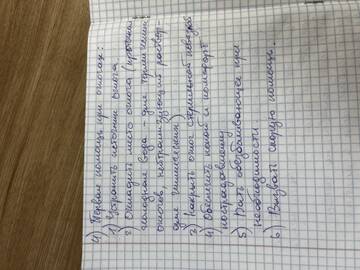 4) Первая помощь при ожогах:
1) Устранить источник ожога
2) Охладить место ожога (проточной
холодной водой - для термических
ожогов, нейтрализующий раствор -
для химических)
3) Накрыть ожог стерильной повязкой
4) Обеспечить покой и комфорт
пострадавшему
5) Дать обезболивающее при
необходимости
6) Вызвать скорую помощь.